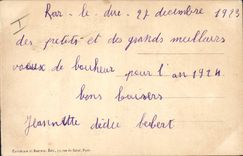 Bar-le-duc 27 décembre 1923
des petits et des grands meilleurs
voeux de bonheur pour l'an 1924
bons baisers
Jeannette dédée bebert